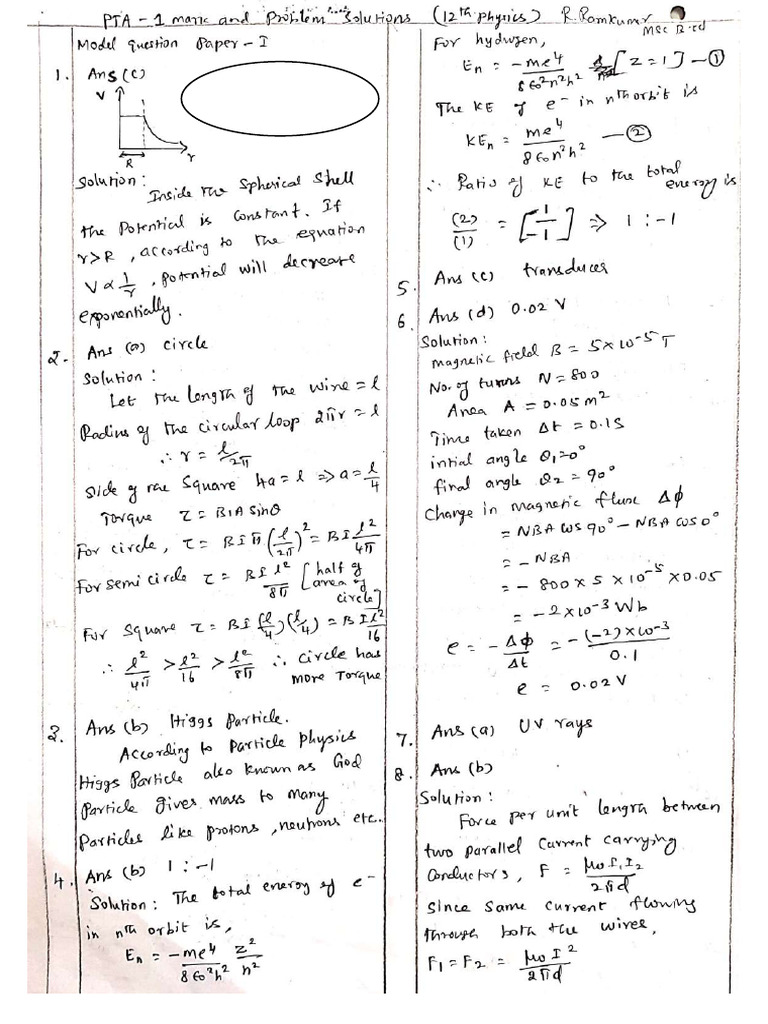 PTA - 1 mark and Problem Solutions (12th physics) R. Ramkumar
MSc B.ed
Model question Paper - I
1. Ans (c)
V
R
r
Solution:
Inside the Spherical Shell
the Potential is constant. If
r>R, according to the equation
V ∝ 1/r, potential will decrease
exponentially.
2. Ans (a) circle
Solution:
Let the length of the wire = l
Radius of the circular loop 2πr = l
∴ r = l/2π
Side of the Square 4a = l ⇒ a = l/4
Torque τ = BIA sinθ
For circle, τ = BIπ(l/2π)² = BI l²/4π
For semi circle τ = BI l²/8π [half of
area of
circle]
For Square τ = BI(l/4)(l/4) = BI l²/16
∴ l²/4π > l²/16 > l²/8π ∴ circle has
more Torque
3. Ans (b) Higgs Particle.
According to Particle physics
Higgs Particle also known as God
Particle gives mass to many
Particles like protons, neutrons etc..
4. Ans (b) 1 : -1
Solution: The total energy of e⁻
in nth orbit is,
En = -me⁴/8ε0²h² z²/n²
For hydrogen,
En = -me⁴/8ε0²n²h² [Z = 1] — ①
The KE of e⁻ in nth orbit is
KEn = me⁴/8ε0n²h² — ②
∴ Ratio of KE to the total
energy is
(2)/(1) = [1/-1] ⇒ 1 : -1
5. Ans (c) transducer
6. Ans (d) 0.02 V
Solution:
Magnetic field B = 5×10⁻⁵ T
No. of turns N = 800
Area A = 0.05 m²
Time taken Δt = 0.1s
intial angle θ1=0°
final angle θ2 = 90°
Change in Magnetic flux Δϕ
= NBA cos 90° - NBA cos 0°
= - NBA
= - 800 × 5 × 10⁻⁵ × 0.05
= -2×10⁻³ Wb
e = -Δϕ/Δt = -(-2)×10⁻³/0.1
e = 0.02 V
7. Ans (a) UV rays
8. Ans (b)
Solution:
Force per unit length between
two parallel current carrying
conductors, F = μ0 I1 I2/2πd
Since same current flowing
through both the wires,
F1 = F2 = μ0 I²/2πd